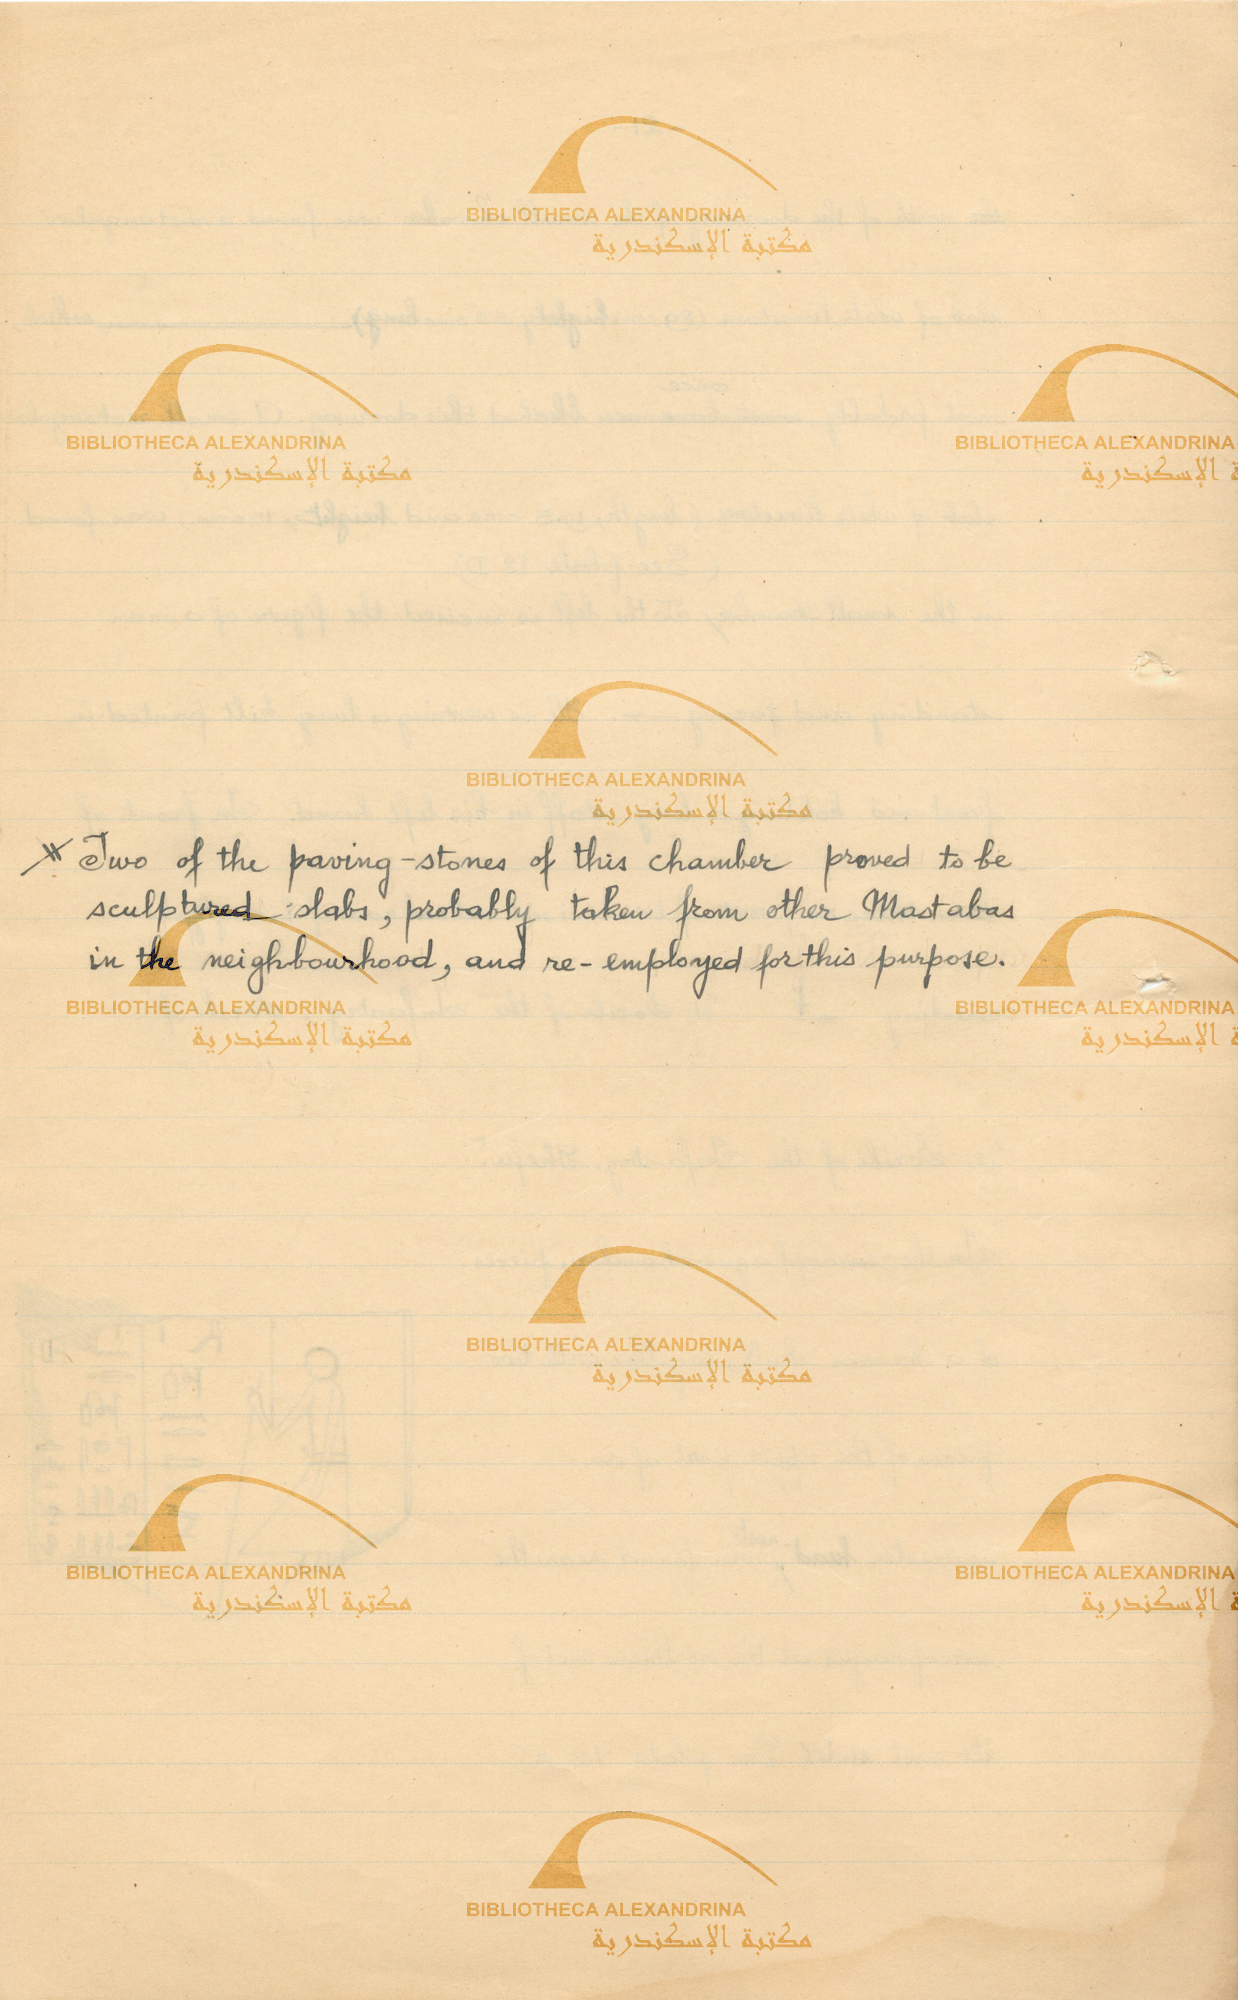 ※ Two of the paving-stones of this chamber proved to be
sculptured slabs, probably taken from other Mastabas
in the neighbourhood, and re-employed for this purpose.
BIBLIOTHECA ALEXANDRINA
مكتبة الإسكندرية
BIBLIOTHECA ALEXANDRINA
مكتبة الإسكندرية
BIBLIOTHECA ALEXANDRINA
مكتبة الإسكندرية
BIBLIOTHECA ALEXANDRINA
مكتبة الإسكندرية
BIBLIOTHECA ALEXANDRINA
مكتبة الإسكندرية
BIBLIOTHECA ALEXANDRINA
مكتبة الإسكندرية
BIBLIOTHECA ALEXANDRINA
مكتبة الإسكندرية
BIBLIOTHECA ALEXANDRINA
مكتبة الإسكندرية
BIBLIOTHECA ALEXANDRINA
مكتبة الإسكندرية
BIBLIOTHECA ALEXANDRINA
مكتبة الإسكندرية